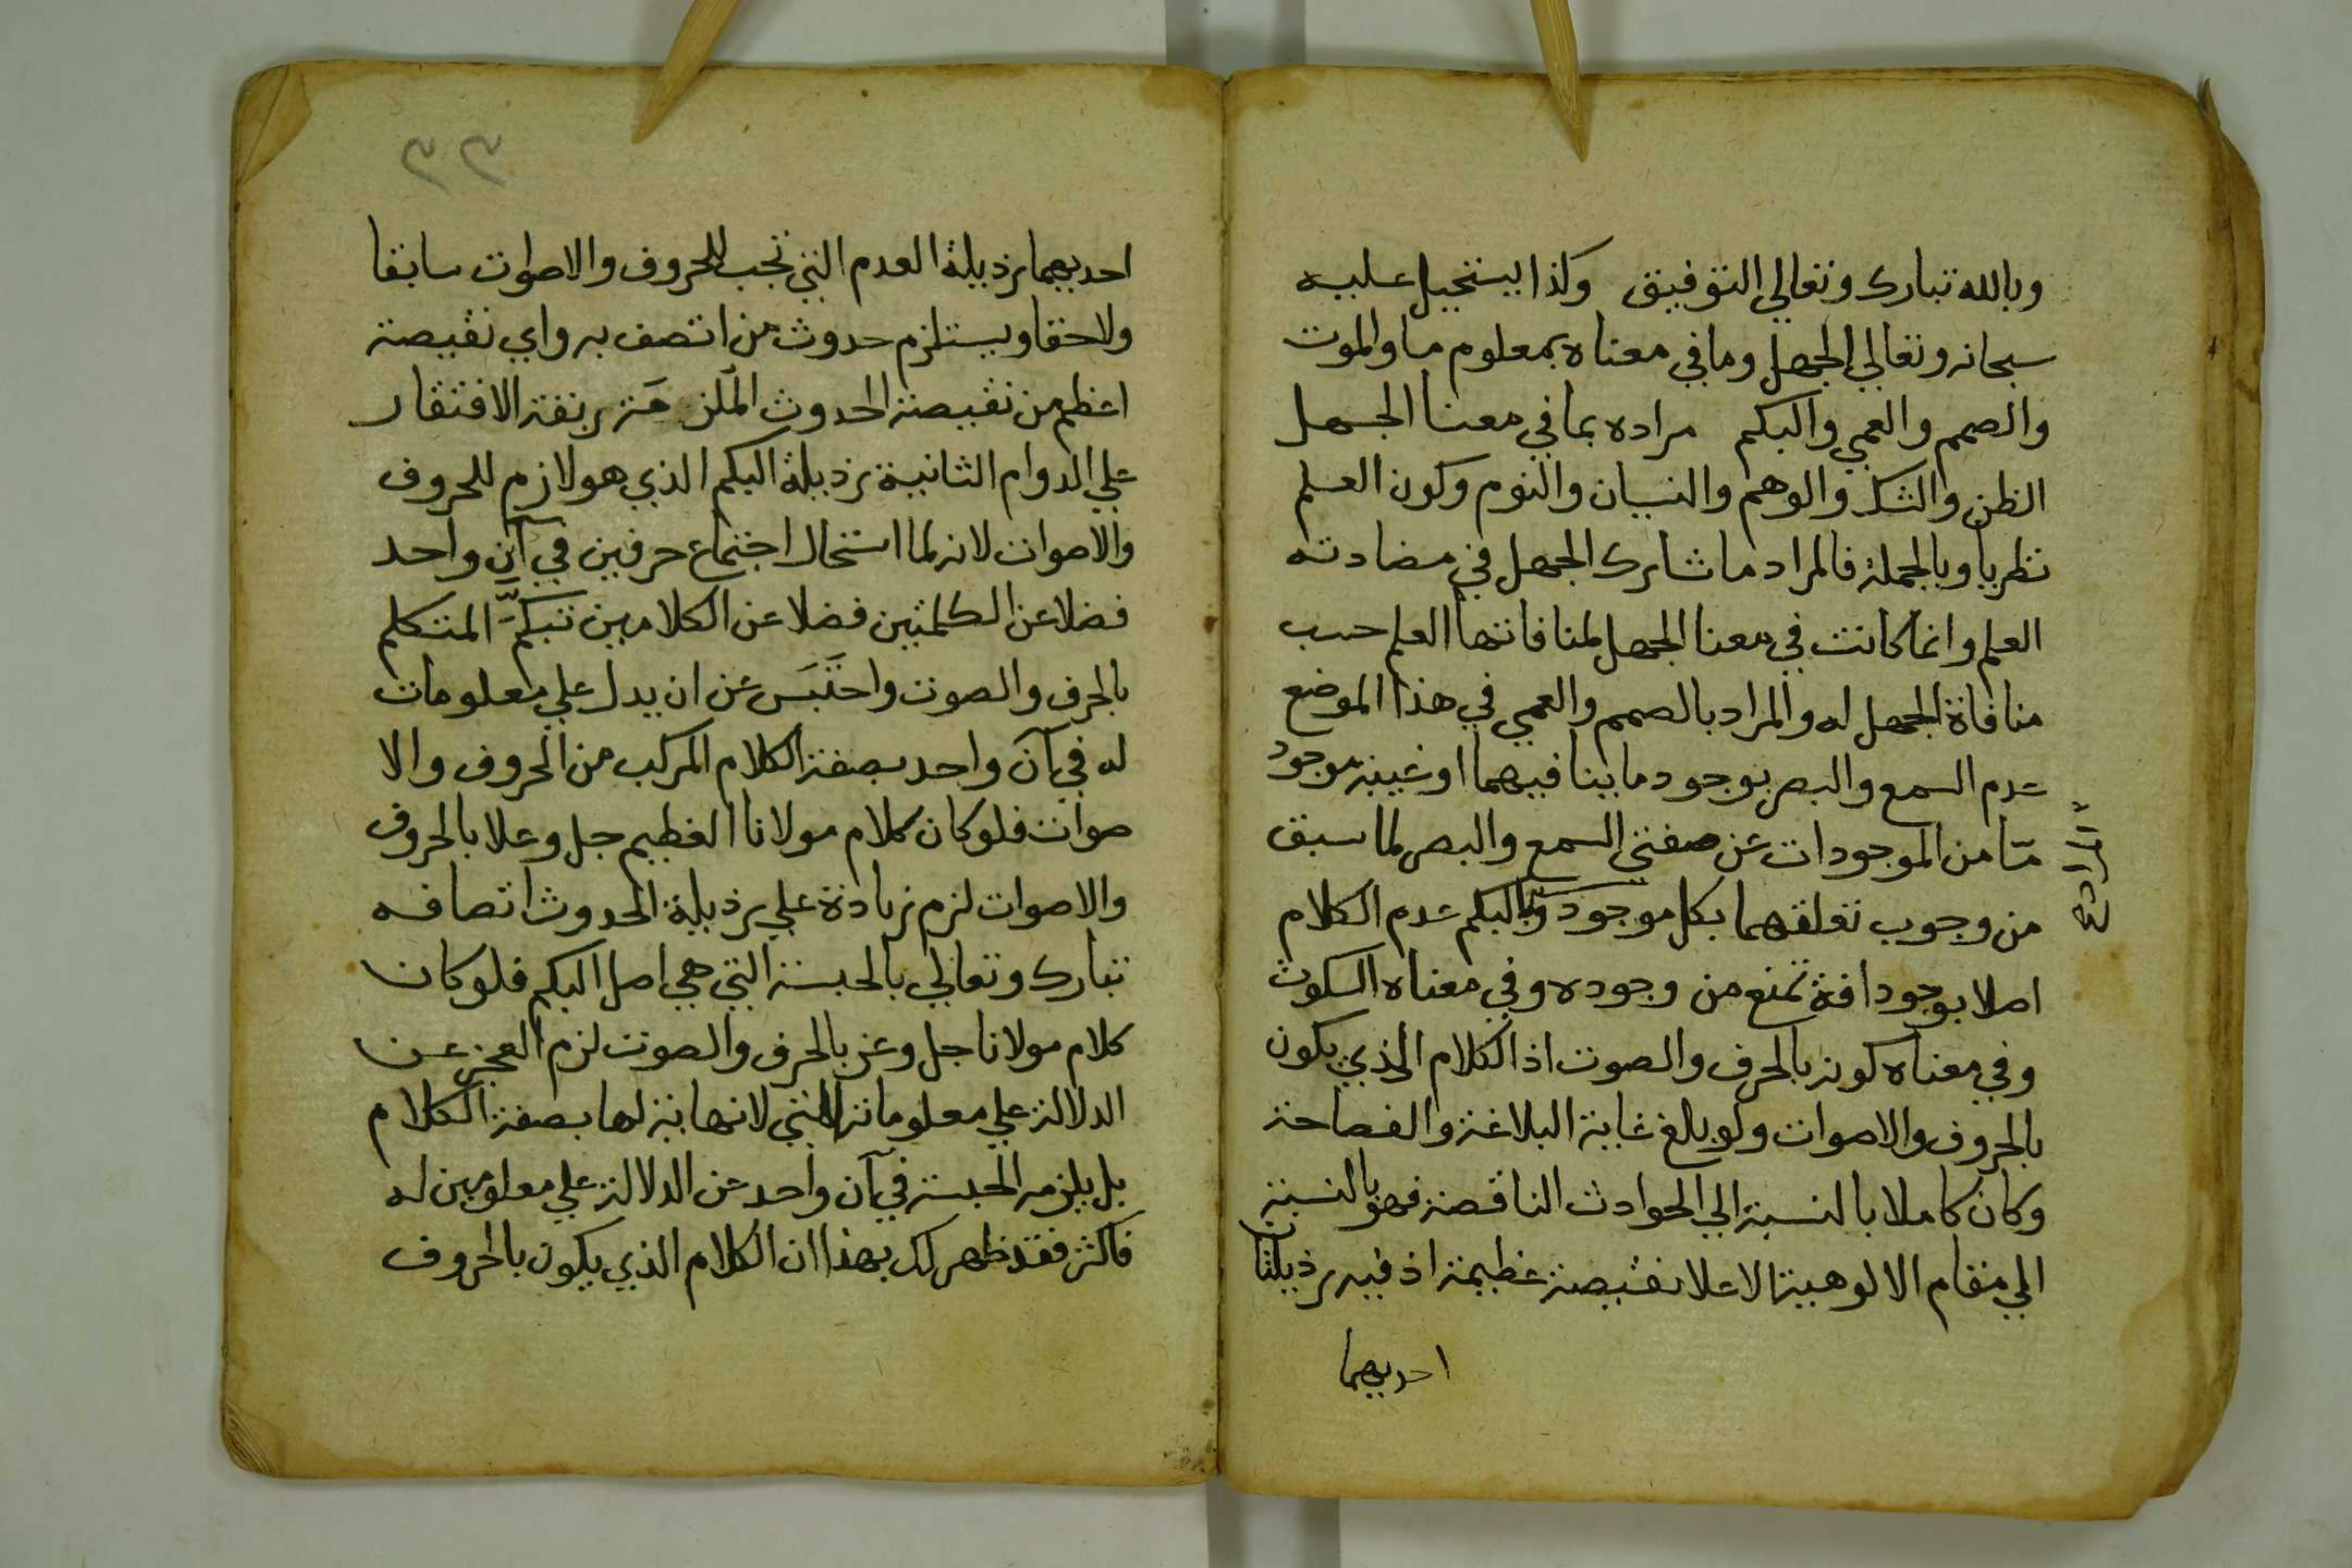 وبالله تبارك وتعالي التوفيق وكذا يستحيل عليه
سبحانه وتعالي الجهل وما في معناه بمعلوم ما والموت
والصمم والعمي والبكم مراده بما في معنا الجهل
الظن والشك والوهم والنسيان والنوم وكون العلم
نظريا وبالجملة فالمراد ما شارك الجهل في مضادته
العلم وانما كانت في معنا الجهل لمنافاتها العلم حسب
منافاة الجهل له والمراد بالصمم والعمي في هذا الموضع
عدم السمع والبصر بوجود ما ينافيهما او غيبة موجود
مّا من الموجودات عن صفتي السمع والبصر لما سبق
من وجوب تعلقهما بكل موجود وبالبكم عدم الكلام
اصلا بوجود افة تمنع من وجوده وفي معناه السكوت
وفي معناه كونه بالحرف والصوت اذ الكلام الذي يكون
بالحروف والاصوات ولو بلغ غاية البلاغة والفصاحة
وكان كاملا بالنسبة الي الحوادث الناقصة فهو بالنسبة
الي مقام الالوهية الاعلا نقيصة عظيمة اذ فيه رذيلتان
احديهما
٣٣
احديهما رذيلة العدم التي تجب للحروف والاصوات سابقا
ولاحقا ويستلزم حدوث من اتصف به واي نقيصة
اعظم من نقيصة الحدوث الملزمة ربقة الافتقار
علي الدوام الثانية رذيلة البكم الذي هو لازم للحروف
والاصوات لانه لما استحال اجتماع حرفين في آن واحد
فضلا عن الكلمتين فضلا عن الكلامين تبكمّ المتكلم
بالحرف والصوت واحتَبَسَ عن ان يدل علي معلومات
له في آن واحد بصفة الكلام المركب من الحروف والا
صوات فلو كان كلام مولانا العظيم جل وعلا بالحروف
والاصوات لزم زيادة علي رذيلة الحدوث اتصافه
تبارك وتعالي بالحبسة التي هي اصل البكم فلو كان
كلام مولانا جل وعز بالحرف والصوت لزم العجز عن
الدلالة علي معلوماته التي لا نهاية لها بصفة الكلام
بل يلزمه الحبسة في آن واحد عن الدلالة علي معلومين له
فاكثر فقد ظهر لك بهذا ان الكلام الذي يكون بالحروف